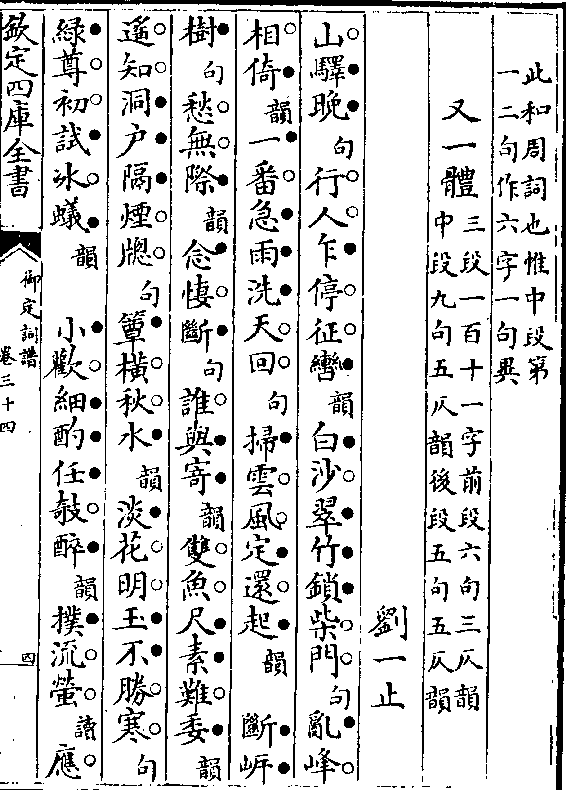 此和周詞也惟中段第
一二句作六字一句異
又一體 三段一百十一字前段六句三仄韻
中段九句五仄韻後段五句五仄韻
劉一止
山驛晚句行人乍停征轡韻白沙翠竹鎖柴門句亂峰
相倚韻一番急雨洗天回句掃雲風定還起韻 斷岸
樹句愁無際韻念悽斷句誰與寄韻雙魚尺素難委韻
遙知洞户隔煙牕句簟橫秋水韻淡花明玉不勝寒句
緑尊初試冰蟻韻 小歡細酌任攲醉韻撲流螢讀應
欽定四庫全書
御定詞譜
卷三十四
四